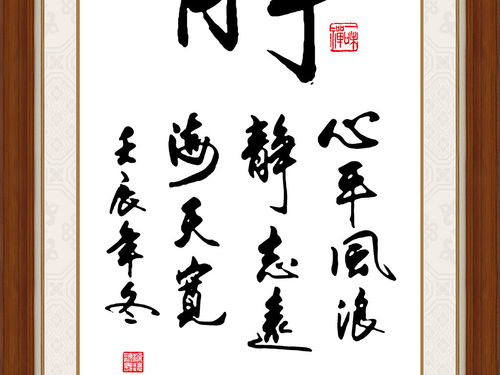 心平風浪
静志遠
海天寬
壬辰年冬